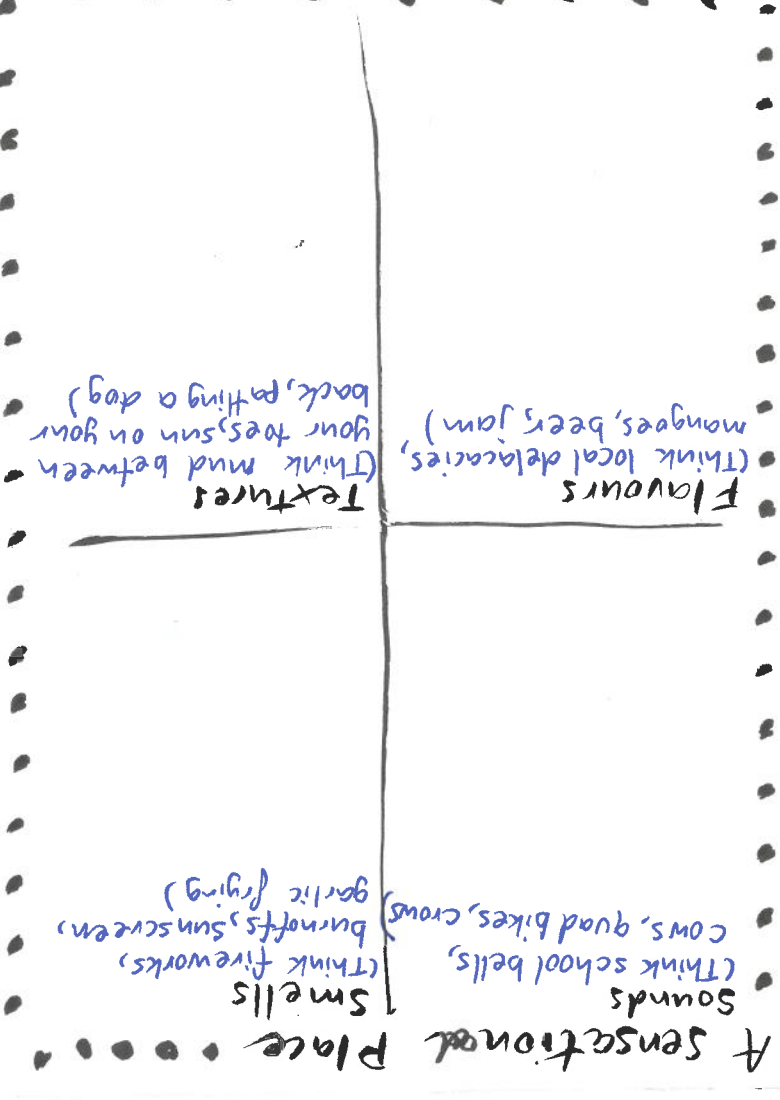 A Sensational Place
Sounds
(Think school bells,
cows, quad bikes, crows)
Smells
(Think fireworks,
burnoffs, sunscreen,
garlic frying)
Flavours
(Think local delacacies,
mangoes, beer, jam)
Textures
(Think mud between
your toes, sun on your
back, patting a dog)